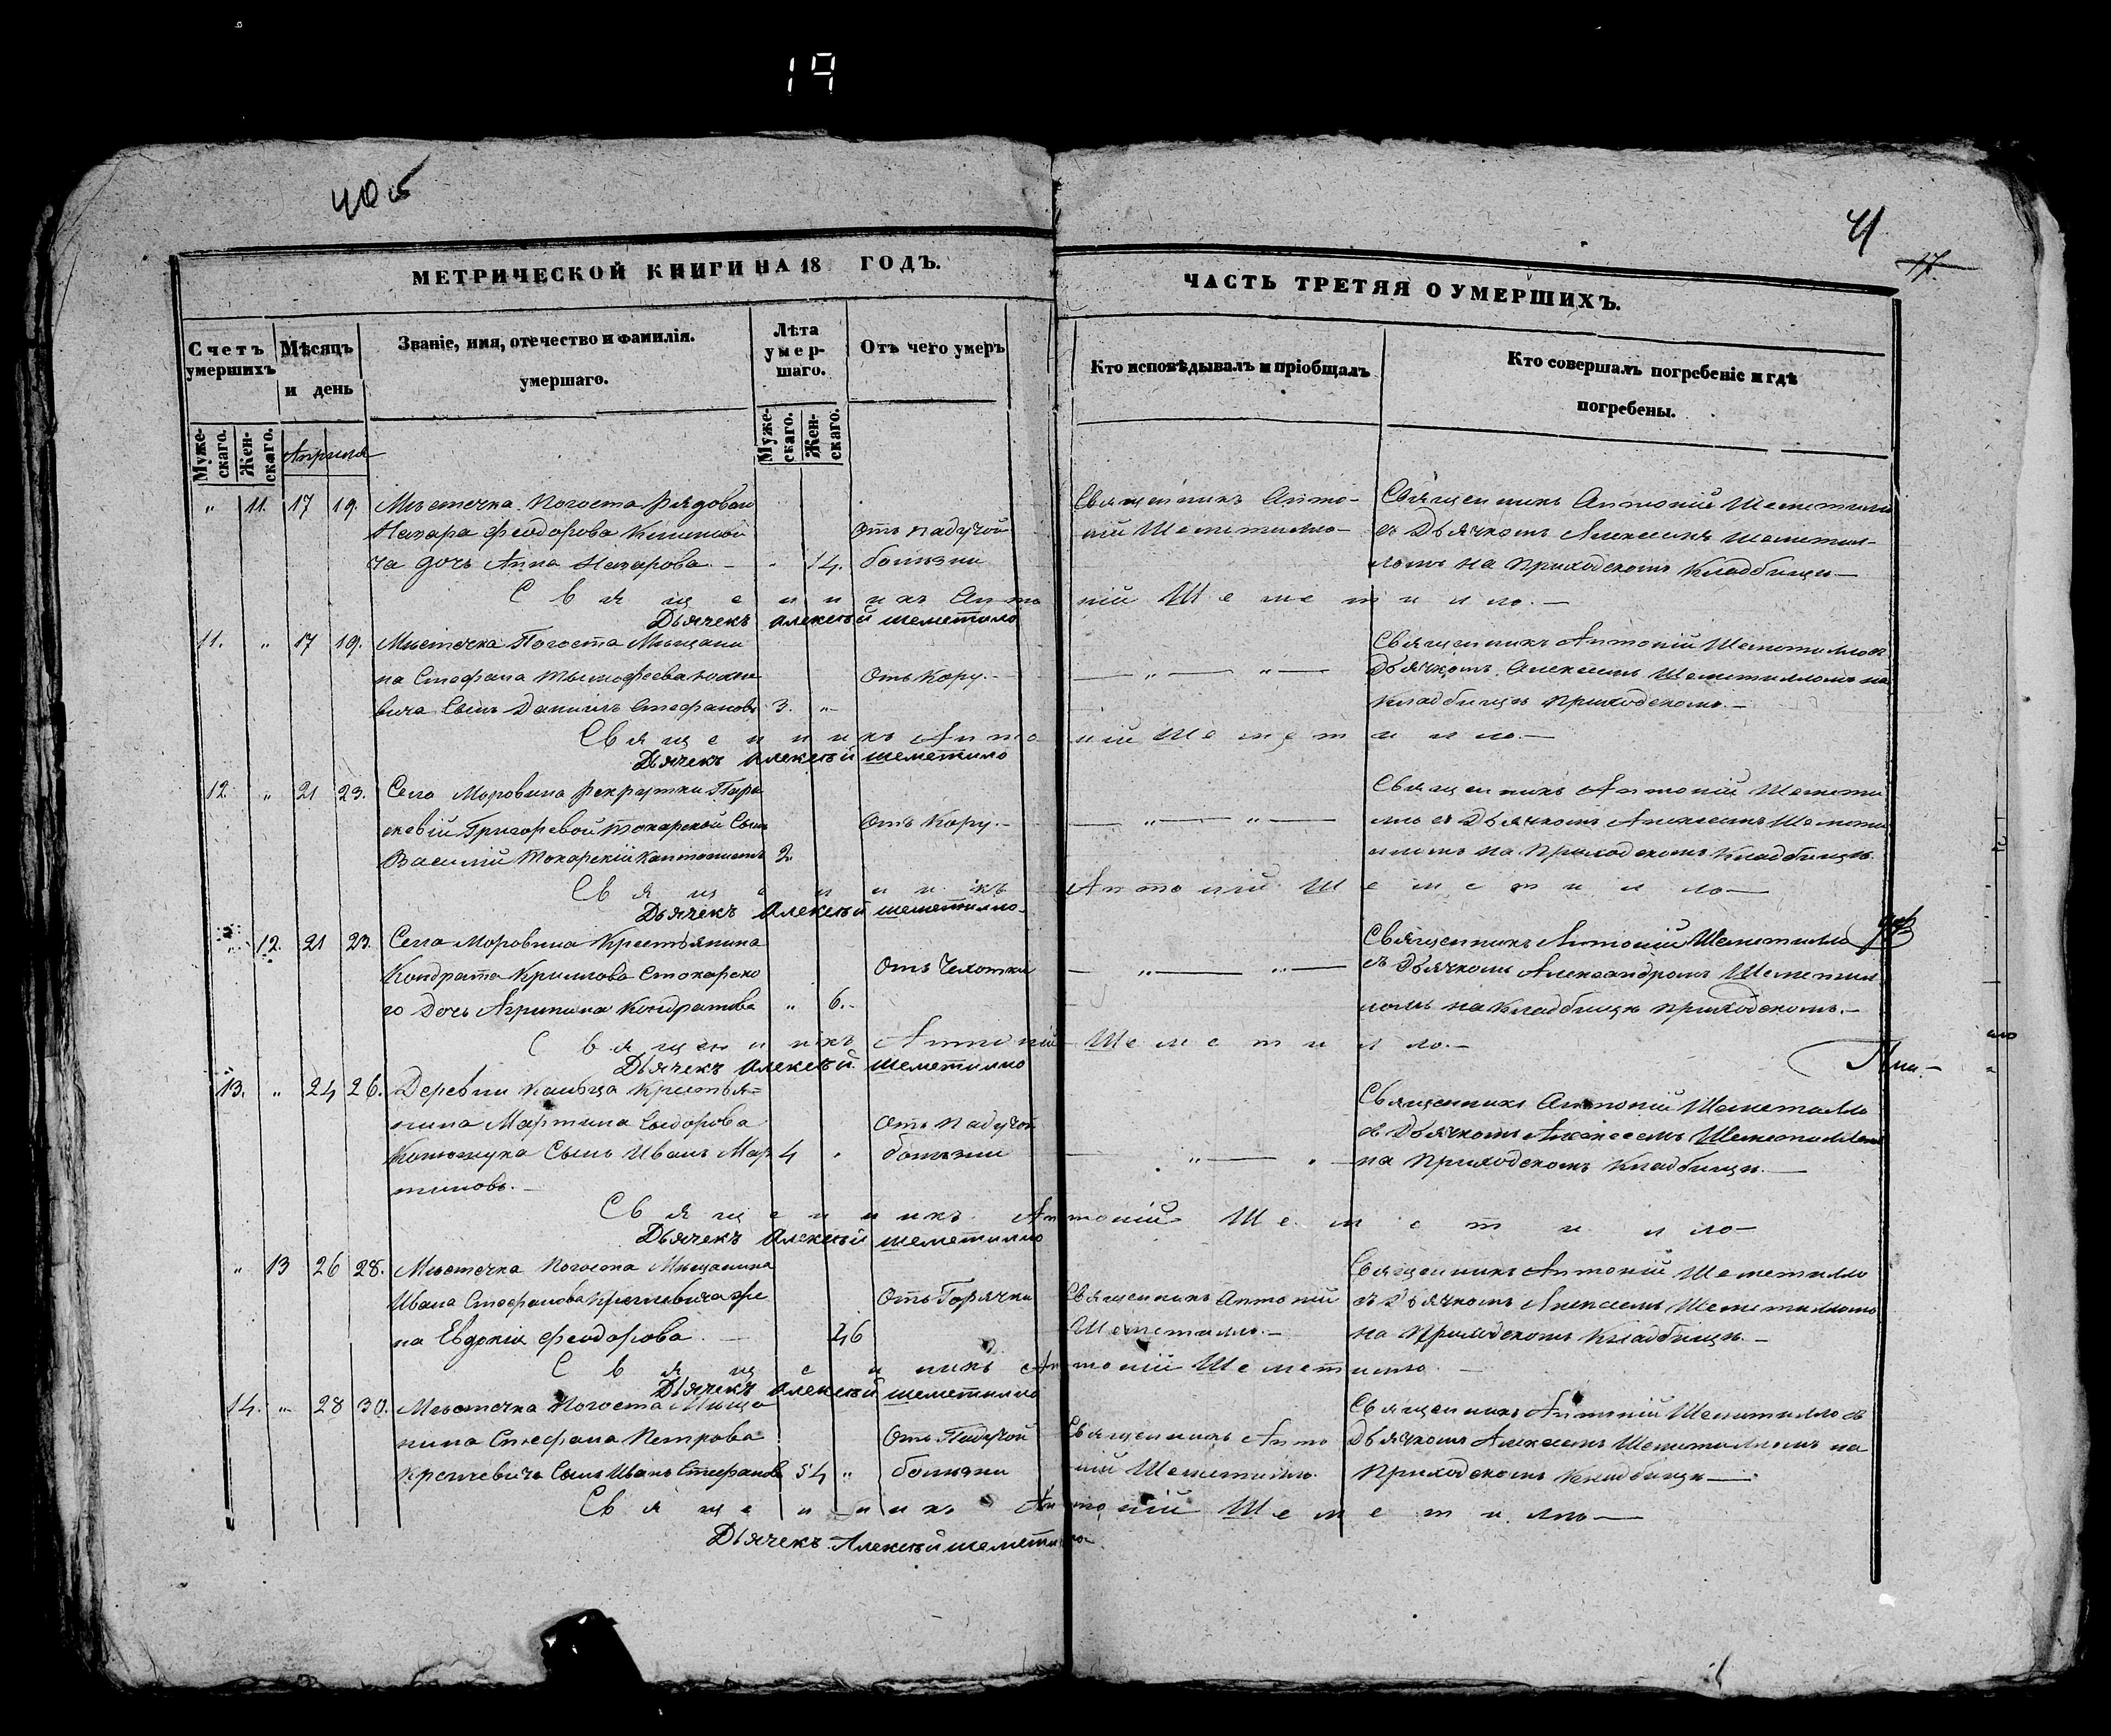 19
40 об
41
17
МЕТРИЧЕСКОЙ КНИГИ НА 18 ГОДЪ.
ЧАСТЬ ТРЕТЯЯ О УМЕРШИХЪ.
Счетъ умершихъ
Мѣсяцъ и день
Званіе, имя, отечество и фамилія.
умершаго.
Лѣта умер-шаго.
Отъ чего умеръ
Кто исповѣдывалъ и пріобщалъ
Кто совершалъ погребеніе и гдѣ
погребены.
Муже-скаго.
Жен-скаго.
Муже-скаго.
Жен-скаго.
Априля
" 11. 17 19. Мѣстечка Погоста рядовой Священникъ Анто- Священникъ Антоній Шеметилло
Назара Феодорова отъ падучой ній Шеметилло— съ Дьячкомъ Алексѣемъ Шеметил-
ча дочь Анна Назарова. — " 14. болѣзни ломъ на Приходскомъ Кладбищѣ—
Священникъ Антоній Шеметилло.—
Дьячекъ Алексѣй Шеметилло
11. " 17 19. Мѣстечка Погоста Мѣщани Священникъ Антоній Шеметилло съ
на Стефана Тымофеева Отъ Кору.— — " — " — Дьячкомъ Алексѣемъ Шеметилломъ на
вича Сынъ Даніилъ Стефановъ 3. " Кладбищѣ Приходскомъ.—
Священникъ Антоній Шеметилло.—
Дьячекъ Алексѣй Шеметилло
12. " 21 23. Села Моровина рекрутки Пара Священникъ Антоній Шемети
скевіи Григорьевой Токарской Сынъ Отъ Кору.— — " — " — лло съ Дьячкомъ Алексѣемъ Шемети
Василій Токарскій Кантонистъ 2. лломъ на Приходскомъ Кладбищѣ.
Священникъ Антоній Шеметилло—
Дьячекъ Алексѣй Шеметилло
" 12. 21 23. Села Моровина Крестьянина Священникъ Антоній Шеметилло
Кондрата Кирилова Стокарско Отъ Чехотки — " — " — съ Дьячкомъ Александромъ Шеметил
го Дочь Агрипина Кондратова " 6.— ломъ на Кладбищѣ приходскомъ.—
Священникъ Антоній Шеметилло.—
Дьячекъ Алексѣй Шеметилло
13. " 24 26. Деревни Крестья= Священникъ Антоній Шеметилло
нина Мартина Сидорова Отъ Падучой съ Дьячкомъ Алексѣемъ Шеметилломъ
Сынъ Иванъ Мар 4 " болѣзни — " — " — на Приходскомъ Кладбищѣ.—
тиновъ.—
Священникъ Антоній Шеметилло—
Дьячекъ Алексѣй Шеметилло
" 13 26 28. Мѣстечка Погоста Мѣщанина Священникъ Антоній Шеметилло
Ивана Стефанова Кречевича же Отъ Горячки Священникъ Антоній съ Дьячкомъ Алексѣемъ Шеметилломъ
на Евдокія Феодорова. — 46 Шеметилло.— на Приходскомъ Кладбищѣ.—
Священникъ Антоній Шеметилло.—
Дьячекъ Алексѣй Шеметилло
14. " 28 30. Мѣстечка Погоста Мѣща Священникъ Антоній Шеметилло съ
нина Стефана Петрова Отъ Падучой Священникъ Анто Дьячкомъ Алексѣемъ Шеметилломъ на
Кречевича Сынъ Иванъ Стефановъ 54 " болѣзни ній Шеметилло. Приходскомъ Кладбищѣ—
Священникъ Антоній Шеметилло—
Дьячекъ Алексѣй Шеметилло